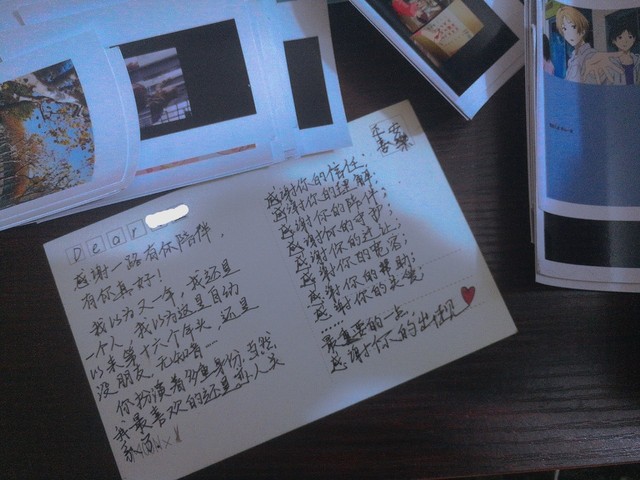 Dear
感谢一路有你陪伴，
有你真好！
我以为又一年，我还是
一个人，我以为这是自幼
以来第十六个年头，还是
没朋友，无知者……
你扮演着多重身份，当然
我最喜欢的还是
平安
喜乐
感谢你的信任；
感谢你的理解；
感谢你的陪伴；
感谢你的守护；
感谢你的见证；
感谢你的宽容；
感谢你的帮助；
感谢你的
……
最重要的一点，
感谢你的出现